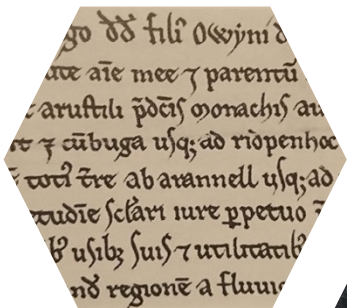 go dd̄ filī Owyni d
ute aīe mee ⁊ parentū
arustili p̄dcīs monachis au
t ⁊ cūbuga usq; ad riopenhoc
totī tr̄e ab arannell usq; ad
tudīe sclāri iure ꝑpetuo ⁊
b; usibȝ suis ⁊ utilitatib
nd̄ regionē a fluui